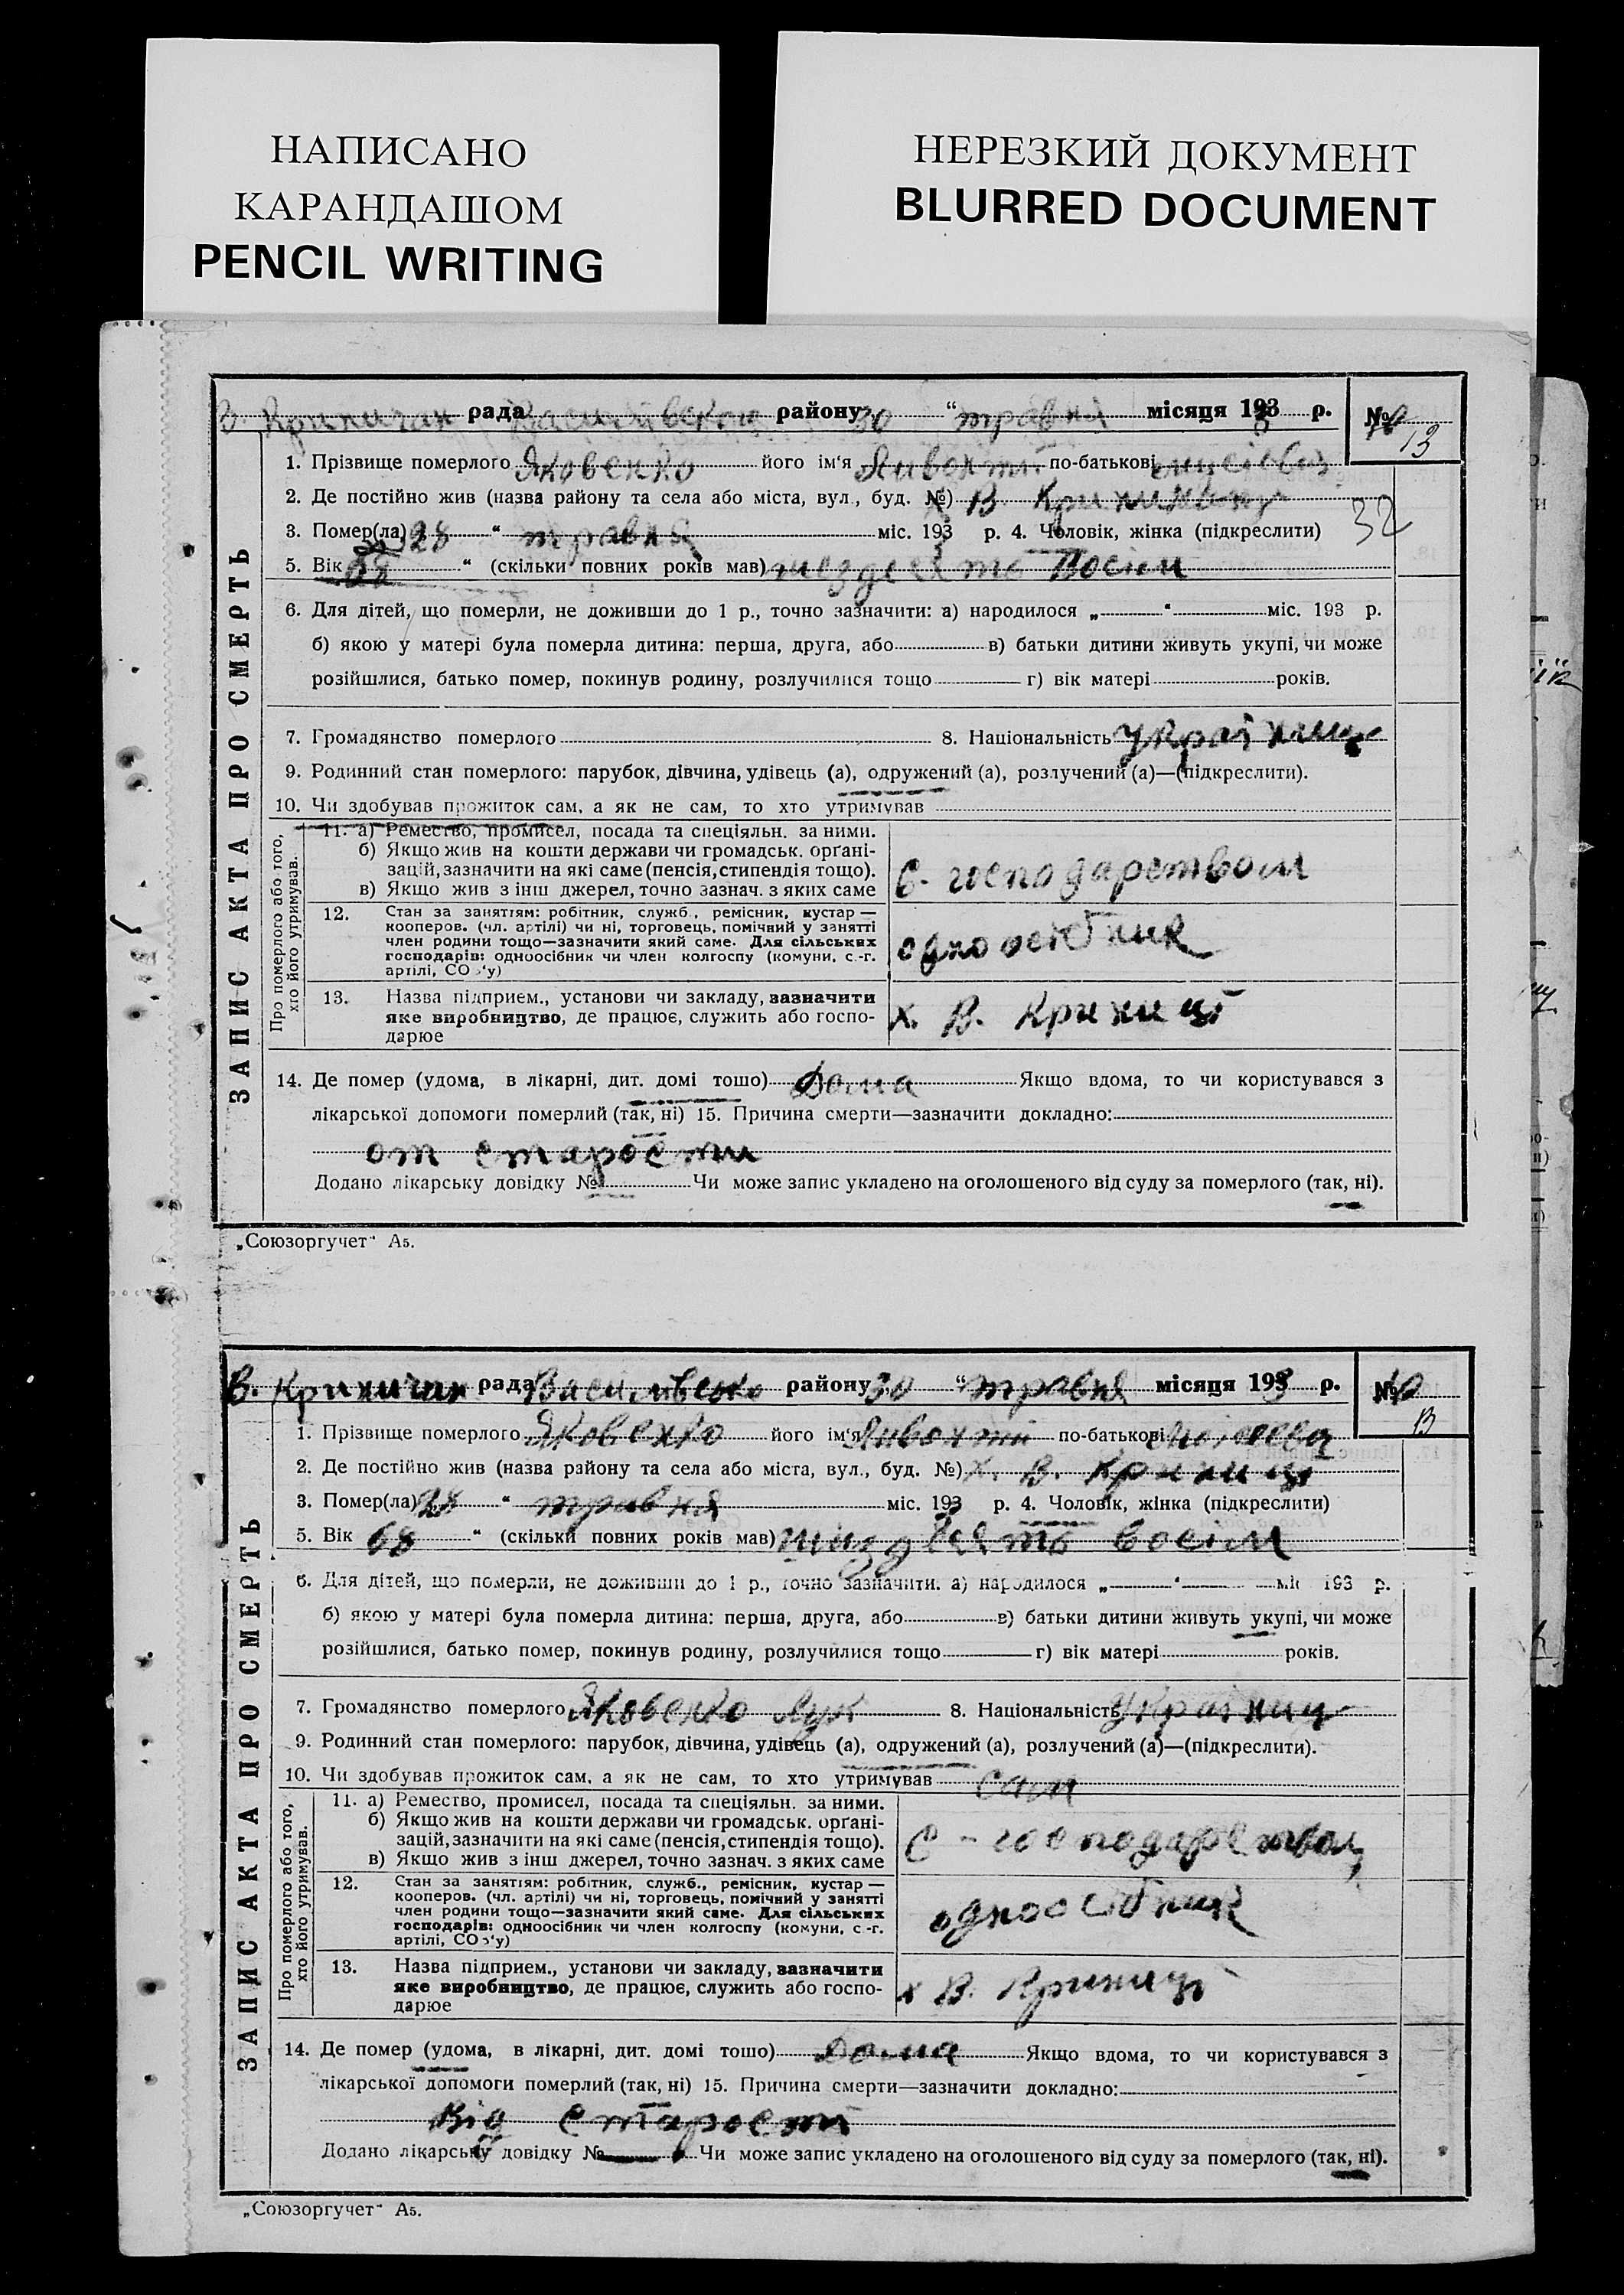 НАПИСАНО
КАРАНДАШОМ
PENCIL WRITING
НЕРЕЗКИЙ ДОКУМЕНТ
BLURRED DOCUMENT
В. Криничан рада району 30 “ травня місяця 193 3 р. № 10
13
1. Прізвище померлого Яковенко його ім'я по-батькові
2. Де постійно жив (назва району та села або міста, вул., буд. №) В
32
3. Помер(ла) 28 “ травня міс. 193 3 р. 4. Чоловік, жінка (підкреслити)
5. Вік 68 “ (скільки повних років мав) восім
6. Для дітей, що померли, не доживши до 1 р., точно зазначити: а) народилося „ “ міс. 193 р.
б) якою у матері була померла дитина: перша, друга, або в) батьки дитини живуть укупі, чи може
розійшлися, батько помер, покинув родину, розлучилися тощо г) вік матері років.
7. Громадянство померлого 8. Національність
9. Родинний стан померлого: парубок, дівчина, удівець (а), одружений (а), розлучений (а)—(підкреслити).
10. Чи здобував прожиток сам, а як не сам, то хто утримував
ЗАПИС АКТА ПРО СМЕРТЬ
Про померлого або того,
хто його утримував.
11. а) Ремество, промисел, посада та спеціяльн. за ними.
б) Якщо жив на кошти держави чи громадськ. орґані-
зацій, зазначити на які саме (пенсія, стипендія тощо).
в) Якщо жив з інш джерел, точно зазнач. з яких саме
С. господарством
12. Стан за заняттям: робітник, служб., ремісник, кустар —
кооперов. (чл. артілі) чи ні, торговець, помічний у занятті
член родини тощо—зазначити який саме. Для сільських
господарів: одноосібник чи член колгоспу (комуни, с.-г.
артілі, СО з'у)
одноосібник
13. Назва підприєм., установи чи закладу, зазначити
яке виробництво, де працює, служить або госпо-
дарює
х. В. Криниці
14. Де помер (удома, в лікарні, дит. домі тощо) Дома Якщо вдома, то чи користувався з
лікарської допомоги померлий (так, ні) 15. Причина смерти—зазначити докладно:
от старости
Додано лікарську довідку № Чи може запис укладено на оголошеного від суду за померлого (так, ні).
„Союзоргучет“ А5.
В. Криничан рада району 30 “ травня місяця 193 3 р. № 10
13
1. Прізвище померлого Яковенко його ім'я по-батькові
2. Де постійно жив (назва району та села або міста, вул., буд. №) х. В. Криниці
3. Помер(ла) 28 “ травня міс. 193 3 р. 4. Чоловік, жінка (підкреслити)
5. Вік 68 “ (скільки повних років мав) восім
6. Для дітей, що померли, не доживши до 1 р., точно зазначити: а) народилося „ “ міс. 193 р.
б) якою у матері була померла дитина: перша, друга, або в) батьки дитини живуть укупі, чи може
розійшлися, батько помер, покинув родину, розлучилися тощо г) вік матері років.
7. Громадянство померлого Яковенко 8. Національність
9. Родинний стан померлого: парубок, дівчина, удівець (а), одружений (а), розлучений (а)—(підкреслити).
10. Чи здобував прожиток сам, а як не сам, то хто утримував сам
ЗАПИС АКТА ПРО СМЕРТЬ
Про померлого або того,
хто його утримував.
11. а) Ремество, промисел, посада та спеціяльн. за ними.
б) Якщо жив на кошти держави чи громадськ. орґані-
зацій, зазначити на які саме (пенсія, стипендія тощо).
в) Якщо жив з інш джерел, точно зазнач. з яких саме
С -
12. Стан за заняттям: робітник, служб., ремісник, кустар —
кооперов. (чл. артілі) чи ні, торговець, помічний у занятті
член родини тощо—зазначити який саме. Для сільських
господарів: одноосібник чи член колгоспу (комуни, с.-г.
артілі, СО з'у)
одноосібник
13. Назва підприєм., установи чи закладу, зазначити
яке виробництво, де працює, служить або госпо-
дарює
х В. Криниці
14. Де помер (удома, в лікарні, дит. домі тощо) Дома Якщо вдома, то чи користувався з
лікарської допомоги померлий (так, ні) 15. Причина смерти—зазначити докладно:
Від старости
Додано лікарську довідку № Чи може запис укладено на оголошеного від суду за померлого (так, ні).
„Союзоргучет“ А5.